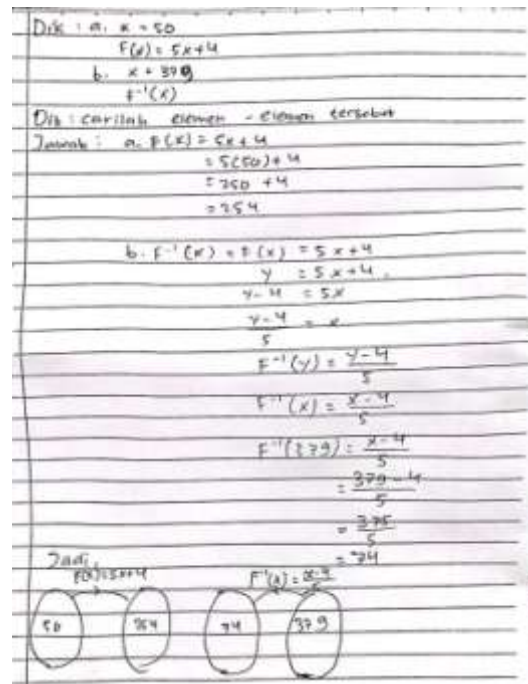 Dik : a. x = 50
F(x) = 5x+4
b. x = 379
F⁻¹(x)
Dit : carilah elemen - elemen tersebut
Jawab : a. F(x) = 5x+4
= 5(50)+4
= 250 +4
= 254
b. F⁻¹(x) = F(x) = 5x+4
y = 5x+4.
y-4 = 5x
y-4/5 = x
F⁻¹(y) = y-4/5
F⁻¹(x) = x-4/5
F⁻¹(379) = x-4/5
= 379-4/5
= 375/5
= 74
Jadi,
F(x)=5x+4 F⁻¹(x) = x-4/5
50 254 74 379